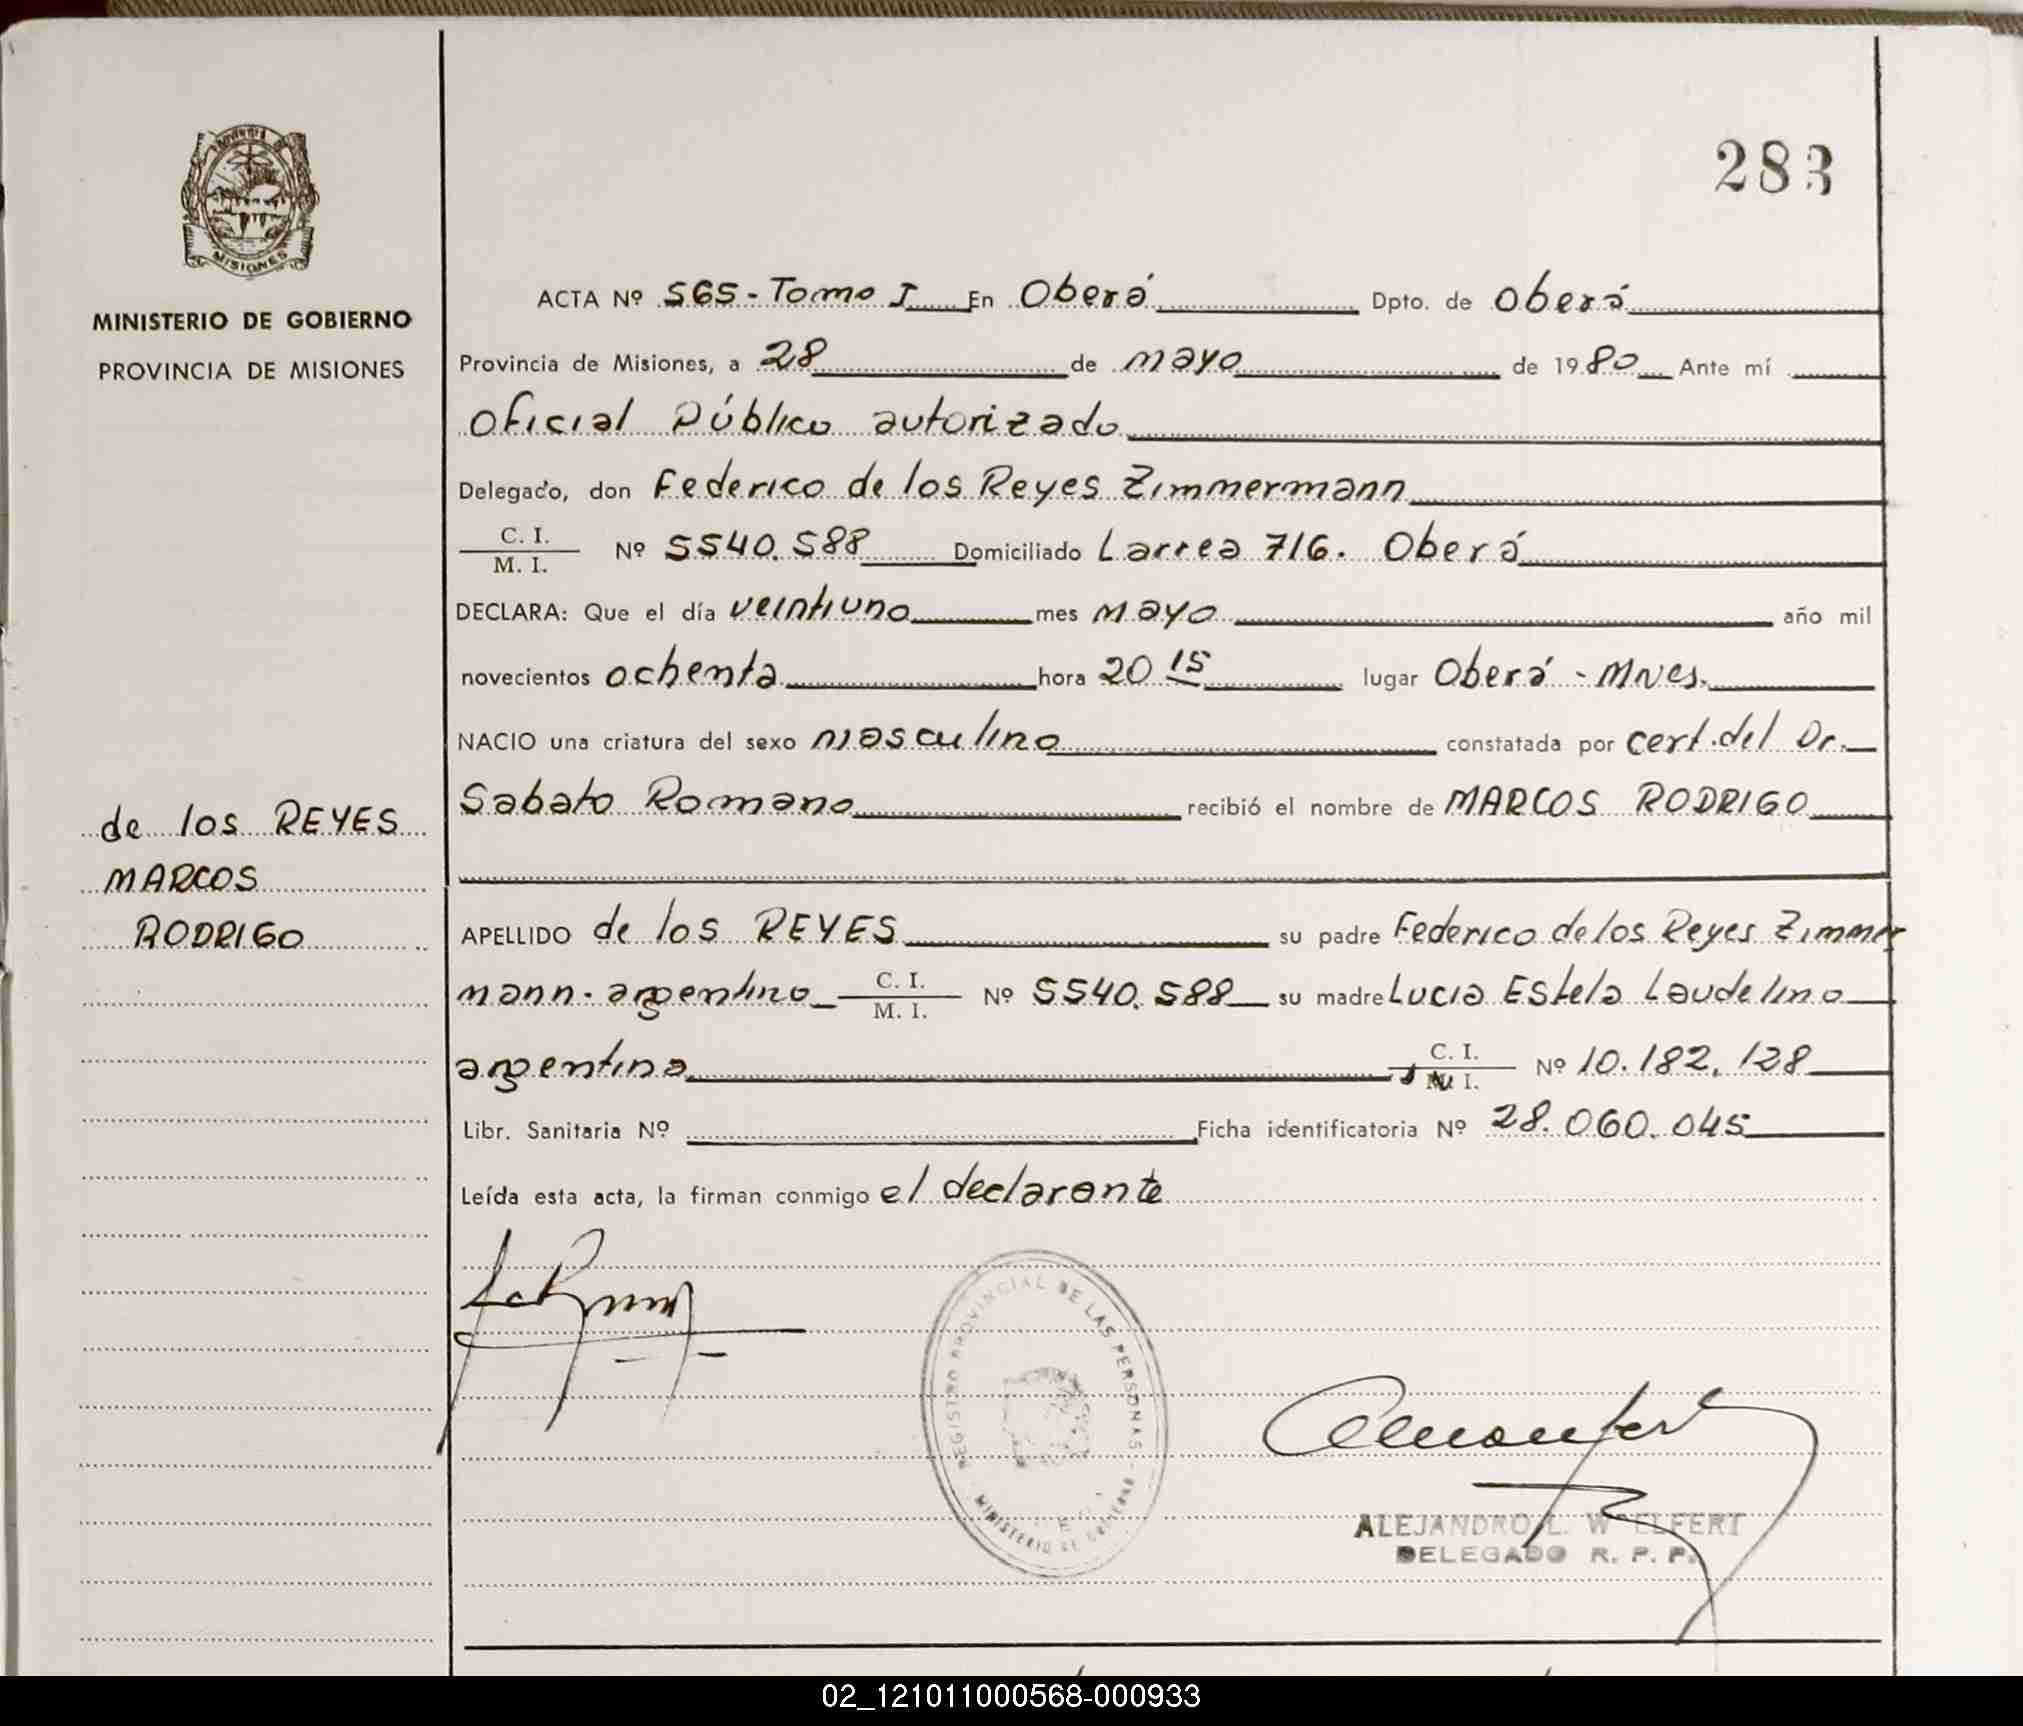 283
MISIONES
MINISTERIO DE GOBIERNO
PROVINCIA DE MISIONES
ACTA Nº 565 - Tomo I En Oberá Dpto. de Oberá
Provincia de Misiones, a 28 de mayo de 1980 Ante mí
Oficial Público autorizado
Delegado, don Federico de los Reyes Zimmermann
C. I.
M. I. Nº 5540.588 Domiciliado Larrea 716. Oberá
DECLARA: Que el día veintiuno mes mayo año mil
novecientos ochenta hora 20 15 lugar Oberá - Mnes.
NACIO una criatura del sexo masculino constatada por cert. del Dr.
Sabato Romano recibió el nombre de MARCOS RODRIGO
de los REYES
MARCOS
RODRIGO
APELLIDO de los REYES su padre Federico de los Reyes Zimmer
mann - argentino C. I. M. I. Nº 5540.588 su madre Lucia Estela Laudelino
argentina C. I. M. I. Nº 10.182.128
Libr. Sanitaria Nº Ficha identificatoria Nº 28.060.045
Leída esta acta, la firman conmigo el declarante
REGISTRO PROVINCIAL DE LAS PERSONAS
MINISTERIO DE GOBIERNO
ALEJANDRO L. W ELFERT
DELEGADO R. P. P.
02_121011000568-000933